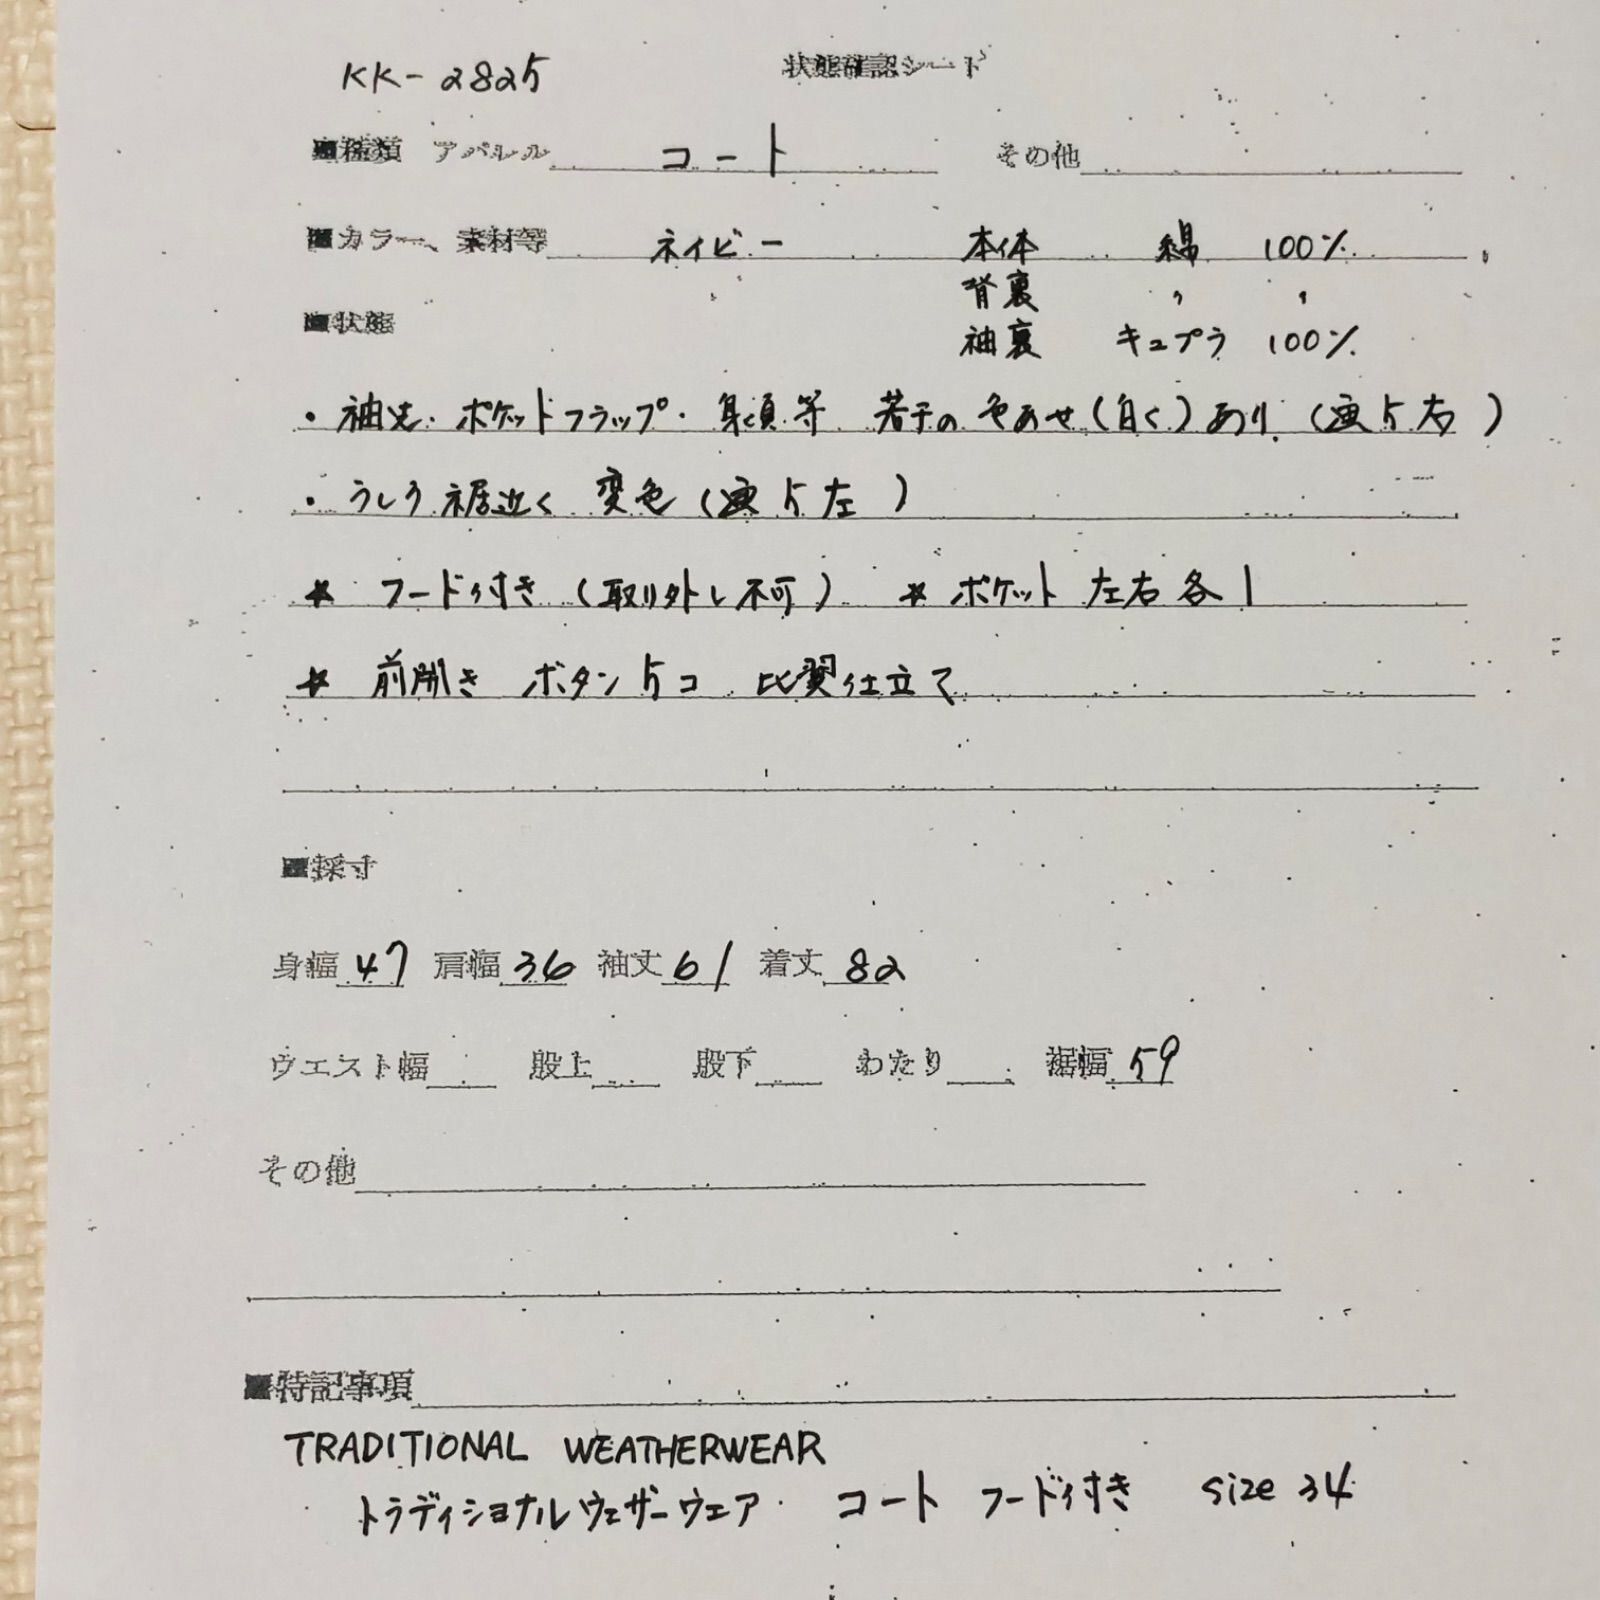 KK-2825 状態確認シート
■種類 アパレル コート その他
■カラー、素材等 ネイビー 本体 綿 100%
背裏 〃 〃
■状態 袖裏 キュプラ 100%
・袖先・ポケットフラップ・身頃等 若干の色あせ(白く)あり(画5右)
・うしろ裾近く 変色(画5左)
* フード付き(取り外し不可) * ポケット 左右各1
* 前開き ボタン5コ 比翼仕立て
■採寸
身幅 47 肩幅 36 袖丈 61 着丈 82
ウエスト幅 股上 股下 わたり 裾幅 59
その他
■特記事項
TRADITIONAL WEATHERWEAR
トラディショナルウェザーウェア コート フード付き size 34